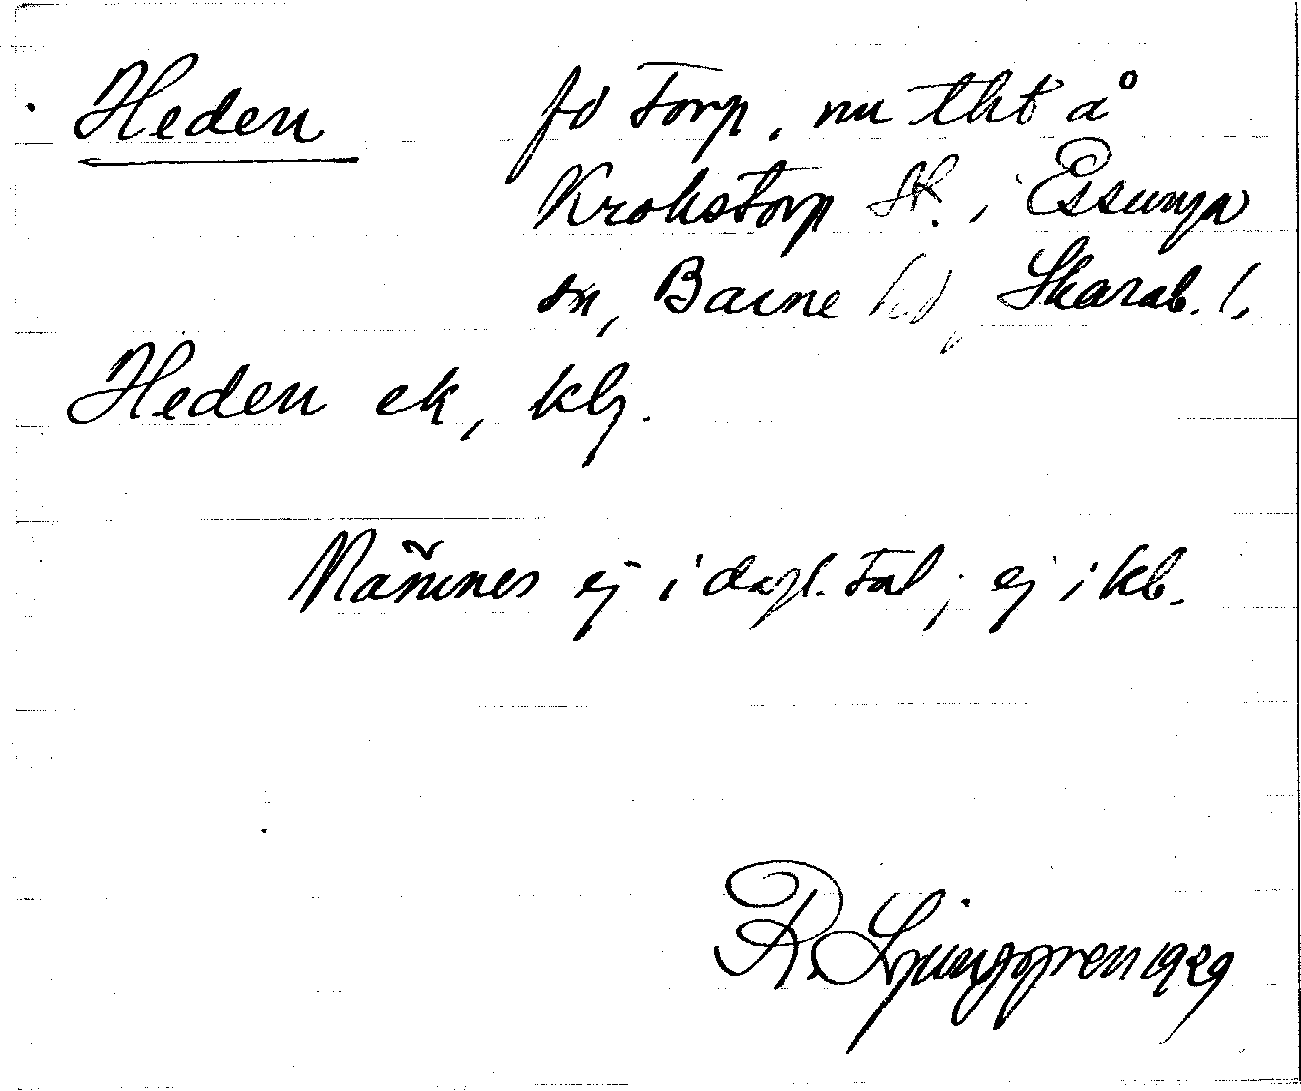 Heden fd torp, nu tht å
Krokstorp St. i Essunga
sn, Barne hd, Skarab. l.
Heden ek, klg.
Nämnes ej i dagl. tal; ej i kb.
R. Ljunggren 1929